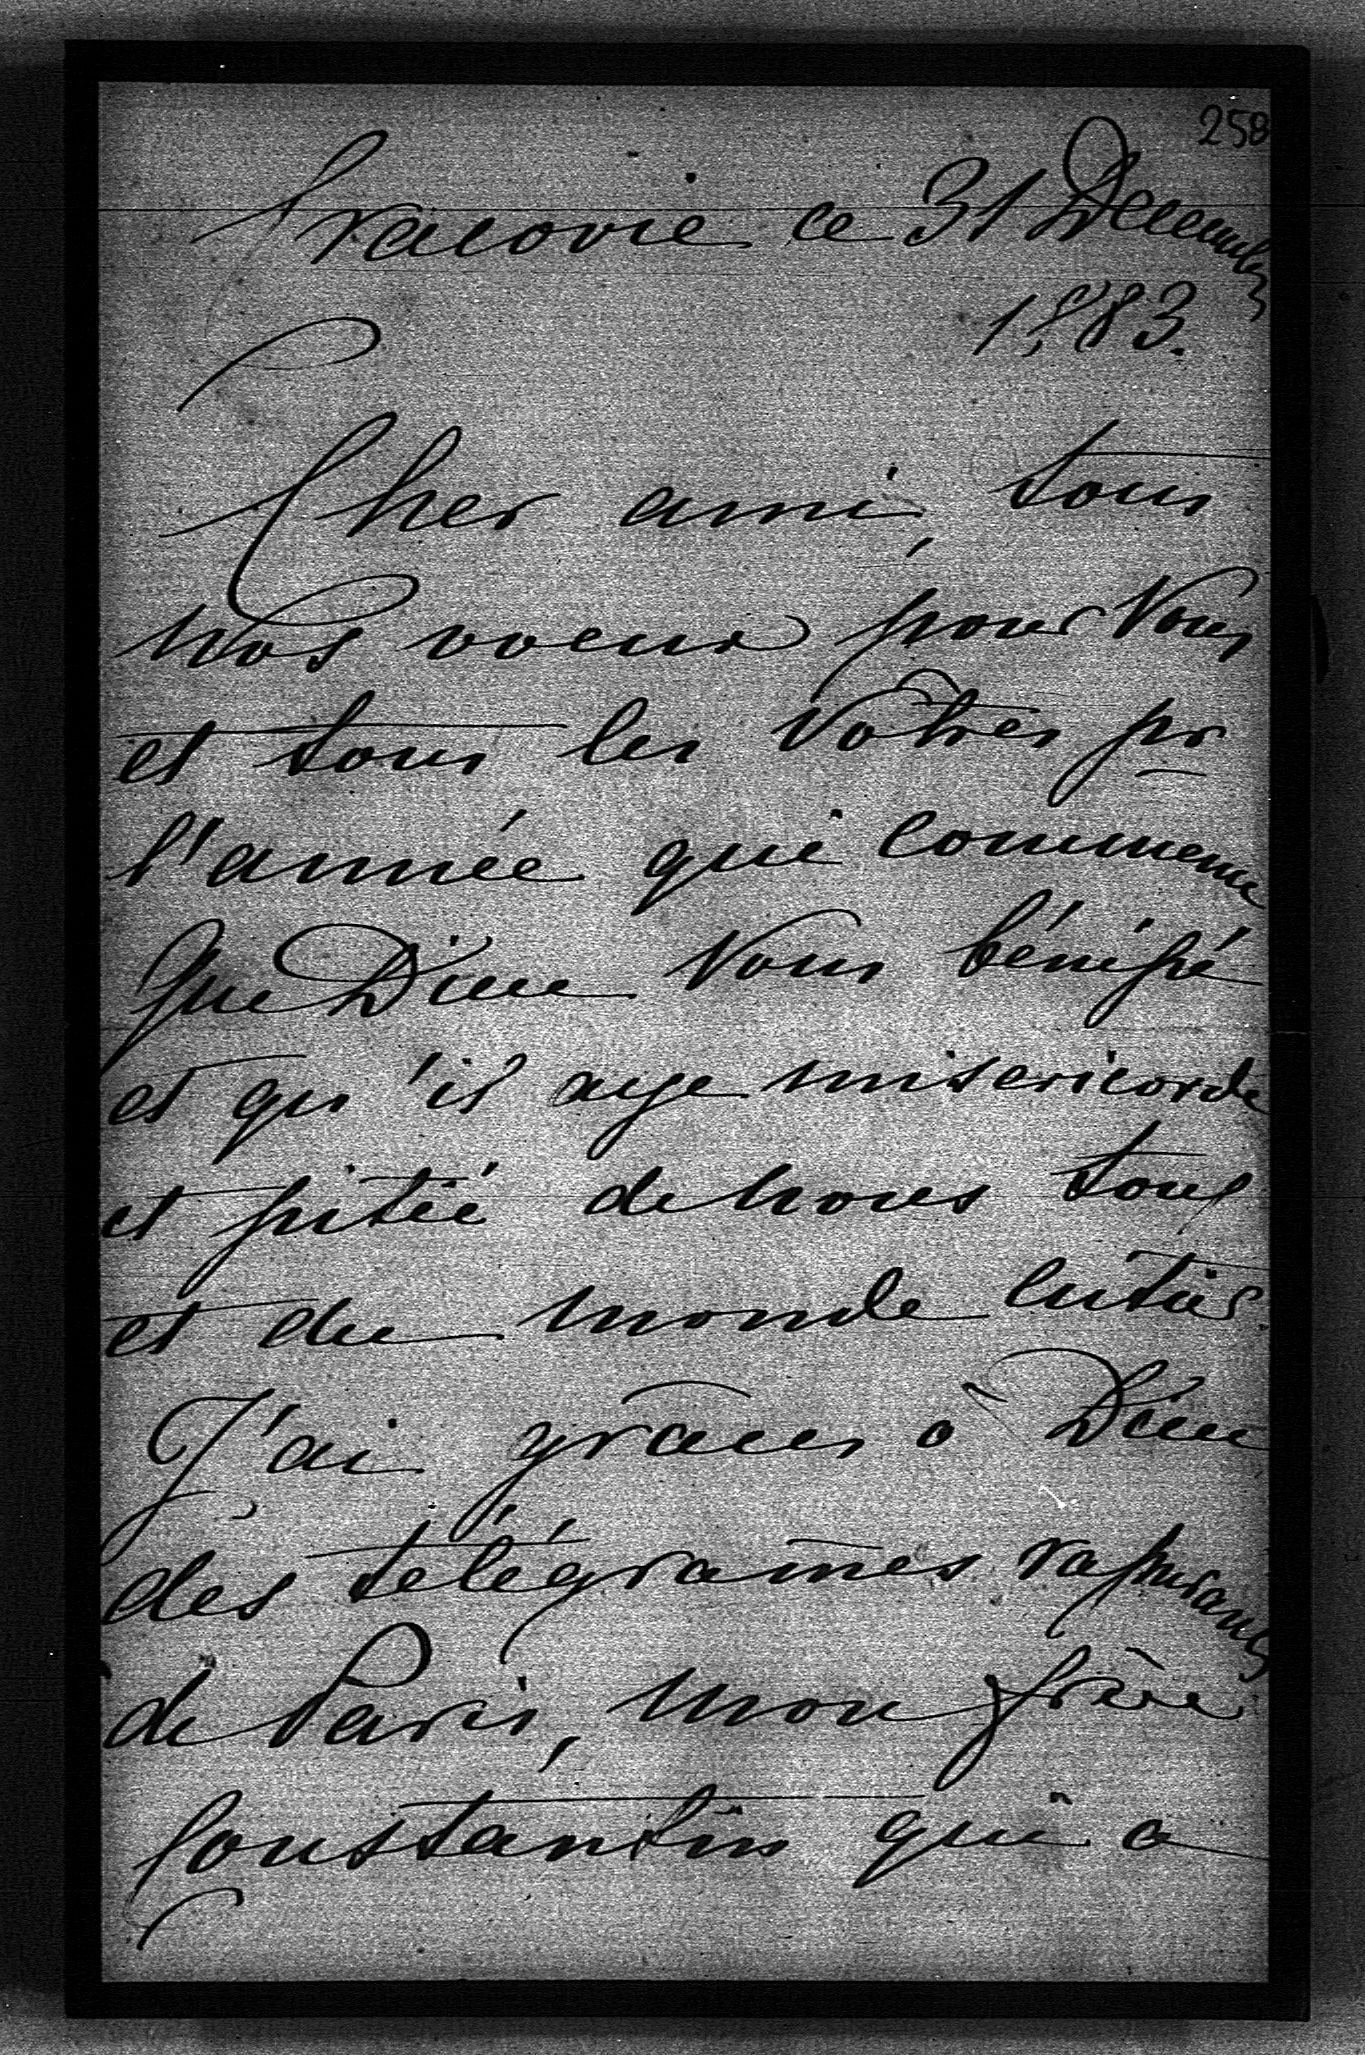 258
Cracovie ce 31 Decembre
1883.
Cher ami, tous
nos voeux pour Vous
et tous les Vôtres pr
l'année qui commence
Que Dieu Vous bénisse
et qu'il aye misericorde
et pitié de nous tous
et du monde entier.
J'ai grâces à Dieu
des télégrames rassurants
de Paris, mon frère
Constantin qui a